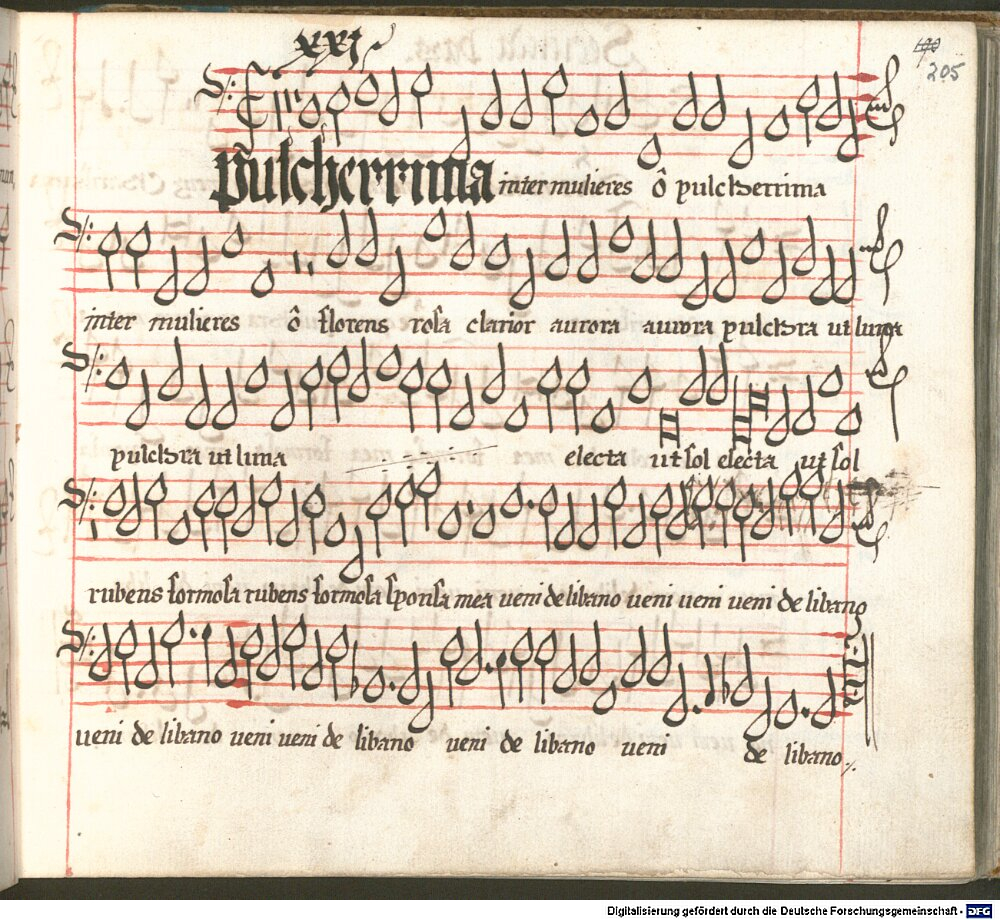 xxj
190
205
Pulcherrima inter mulieres ô pulcherrima
inter mulieres ô florens rosa clarior aurora aurora pulchra ut luna
pulchra ut luna electa ut sol electa ut sol
rubens formosa rubens formosa sponsa mea veni de libano veni veni veni de libano
veni de libano veni veni de libano veni de libano veni de libano
Digitalisierung gefördert durch die Deutsche Forschungsgemeinschaft - DFG